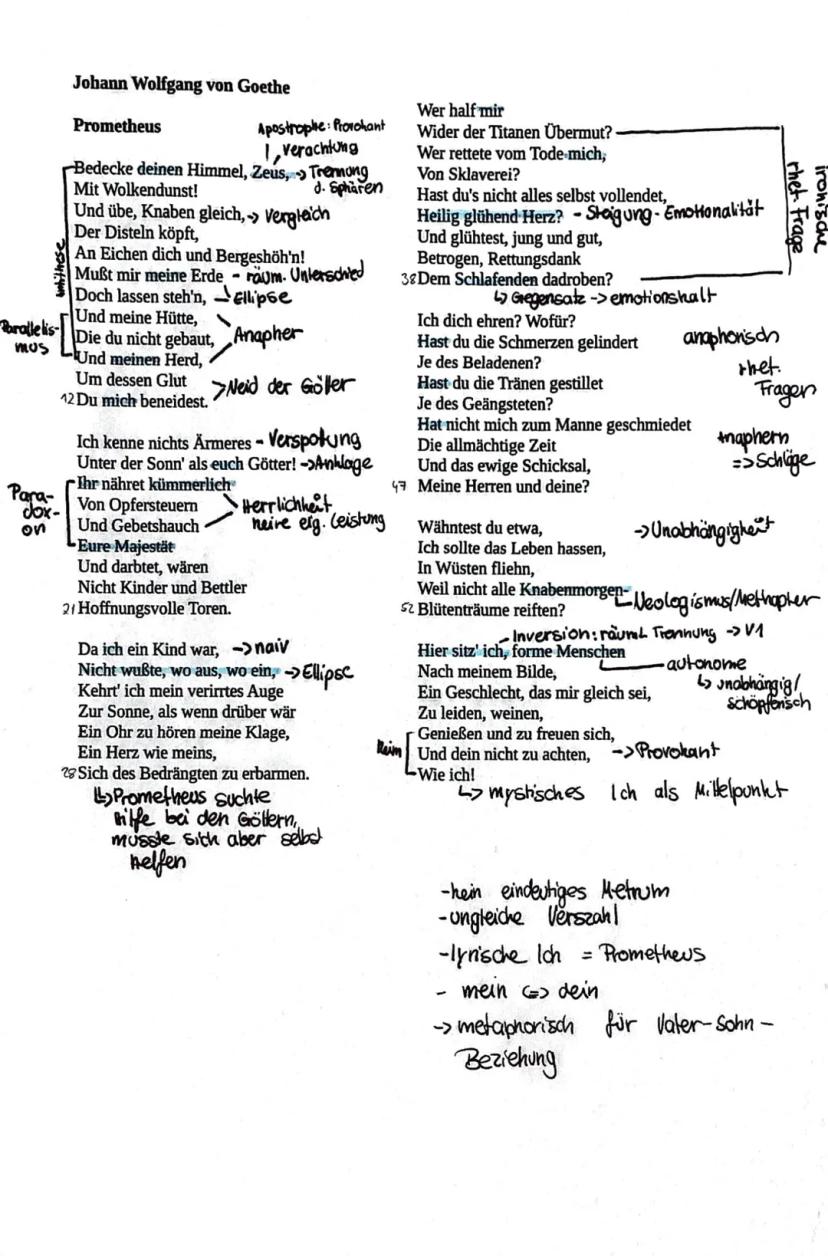 Johann Wolfgang von Goethe
Prometheus
Apostrophe: Provokant
, Verachtung
Bedecke deinen Himmel, Zeus, -> Trennung
d. Sphären
Mit Wolkendunst!
Und übe, Knaben gleich, -> Vergleich
Der Disteln köpft,
An Eichen dich und Bergeshöh'n!
Mußt mir meine Erde - räum. Unterschied
Doch lassen steh'n, -> Ellipse
Antithese
Und meine Hütte,
Die du nicht gebaut, Anapher
Und meinen Herd,
Parallelis-
mus
Um dessen Glut
> Neid der Götter
12 Du mich beneidest.
Ich kenne nichts Ärmeres - Verspottung
Unter der Sonn' als euch Götter! -> Anklage
Ihr nähret kümmerlich
Von Opfersteuern Herrlichkeit
Und Gebetshauch keine eig. Leistung
Eure Majestät
Para-
dox-
on
Und darbtet, wären
Nicht Kinder und Bettler
21 Hoffnungsvolle Toren.
Da ich ein Kind war, -> naiv
Nicht wußte, wo aus, wo ein, -> Ellipse
Kehrt' ich mein verirrtes Auge
Zur Sonne, als wenn drüber wär
Ein Ohr zu hören meine Klage,
Ein Herz wie meins,
28 Sich des Bedrängten zu erbarmen.
↳ Prometheus suchte
hilfe bei den Göttern,
musste sich aber selbst
helfen
Wer half mir
Wider der Titanen Übermut?
Wer rettete vom Tode mich,
Von Sklaverei?
Hast du's nicht alles selbst vollendet,
Heilig glühend Herz? - Steigung - Emotionalität
Und glühtest, jung und gut,
Betrogen, Rettungsdank
38 Dem Schlafenden dadroben?
ironische
rhet. Frage
↳ Gegensatz -> emotionshalt
Ich dich ehren? Wofür?
Hast du die Schmerzen gelindert anaphorisch
Je des Beladenen? rhet.
Hast du die Tränen gestillet Fragen
Je des Geängsteten?
Hat nicht mich zum Manne geschmiedet
Die allmächtige Zeit Anaphern
Und das ewige Schicksal, => Schläge
47 Meine Herren und deine?
Wähntest du etwa, -> Unabhängigkeit
Ich sollte das Leben hassen,
In Wüsten fliehn,
Weil nicht alle Knabenmorgen-
Neologismus/Methapher
52 Blütenträume reiften?
- Inversion: räuml. Trennung -> V1
Hier sitz' ich, forme Menschen
autonome
Nach meinem Bilde,
↳ unabhängig/
schöpferisch
Ein Geschlecht, das mir gleich sei,
Zu leiden, weinen,
Genießen und zu freuen sich,
Reim Und dein nicht zu achten, -> Provokant
Wie ich!
↳ mystisches Ich als Mittelpunkt
- kein eindeutiges Metrum
- ungleiche Verszahl
- lyrische Ich = Prometheus
- mein <=> dein
-> metaphorisch für Vater-Sohn-
Beziehung